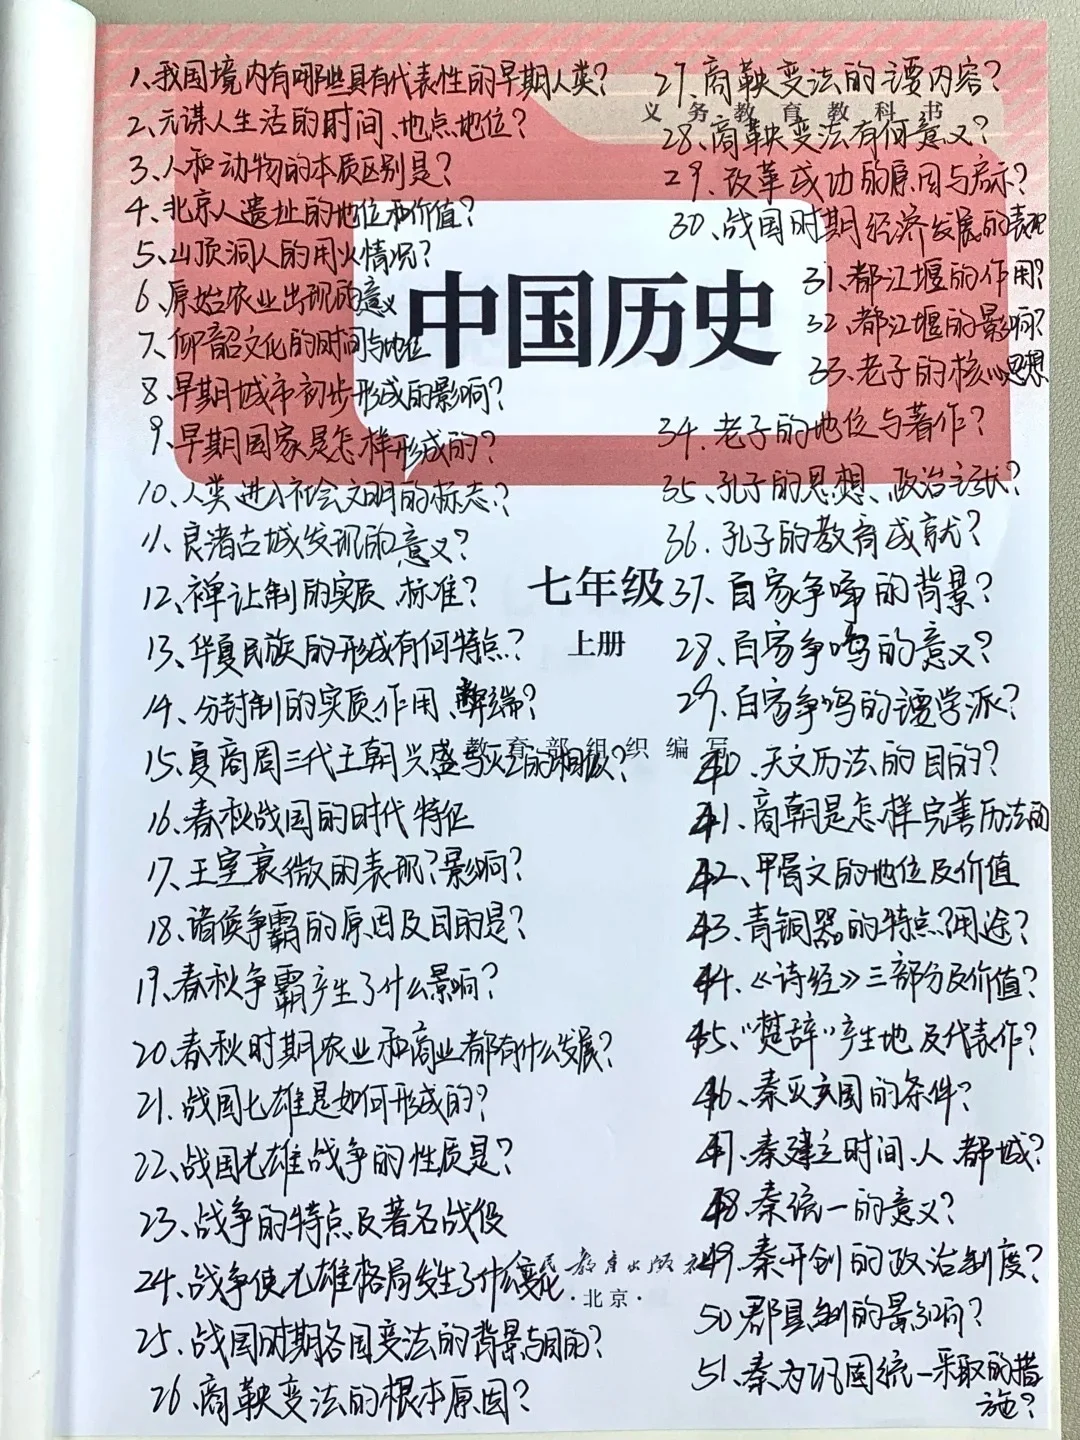 1、我国境内有哪些具有代表性的早期人类?
2、元谋人生活的时间、地点地位?
3、人和动物的本质区别是?
4、北京人遗址的地位和价值?
5、山顶洞人的用火情况?
6、原始农业出现的意义
7、仰韶文化的时间与地位
8、早期城市初步形成的影响?
9、早期国家是怎样形成的?
10、人类进入社会文明的标志?
11、良渚古城发现的意义?
12、禅让制的实质、标准?
13、华夏民族的形成有何特点?
14、分封制的实质、作用、弊端?
15、夏商周三代王朝兴盛与灭亡的相似?
16、春秋战国的时代特征
17、王室衰微的表现?影响?
18、诸侯争霸的原因及目的是?
19、春秋争霸产生了什么影响?
20、春秋时期农业和商业都有什么发展?
21、战国七雄是如何形成的?
22、战国七雄战争的性质是?
23、战争的特点及著名战役
24、战争使七雄格局发生了什么变化
25、战国时期各国变法的背景与目的?
26、商鞅变法的根本原因?
27、商鞅变法的主要内容?
义务教育教科书
28、商鞅变法有何意义?
29、改革成功的原因与启示?
30、战国时期经济发展的表现
31、都江堰的作用?
32、都江堰的影响?
33、老子的核心思想
中国历史
34、老子的地位与著作?
35、孔子的思想、政治主张?
36、孔子的教育成就?
七年级
上册
37、百家争鸣的背景?
28、百家争鸣的意义?
29、百家争鸣的主要学派?
教育部组织编写
40、天文历法的目的?
41、商朝是怎样完善历法的
42、甲骨文的地位及价值
43、青铜器的特点?用途?
44、《诗经》三部分及价值?
45、"楚辞"产生地及代表作?
46、秦灭六国的条件?
47、秦建立时间、人、都城?
48、秦统一的意义?
人民教育出版社
·北京·
49、秦开创的政治制度?
50郡县制的影响?
51、秦为巩固统一采取的措
施?